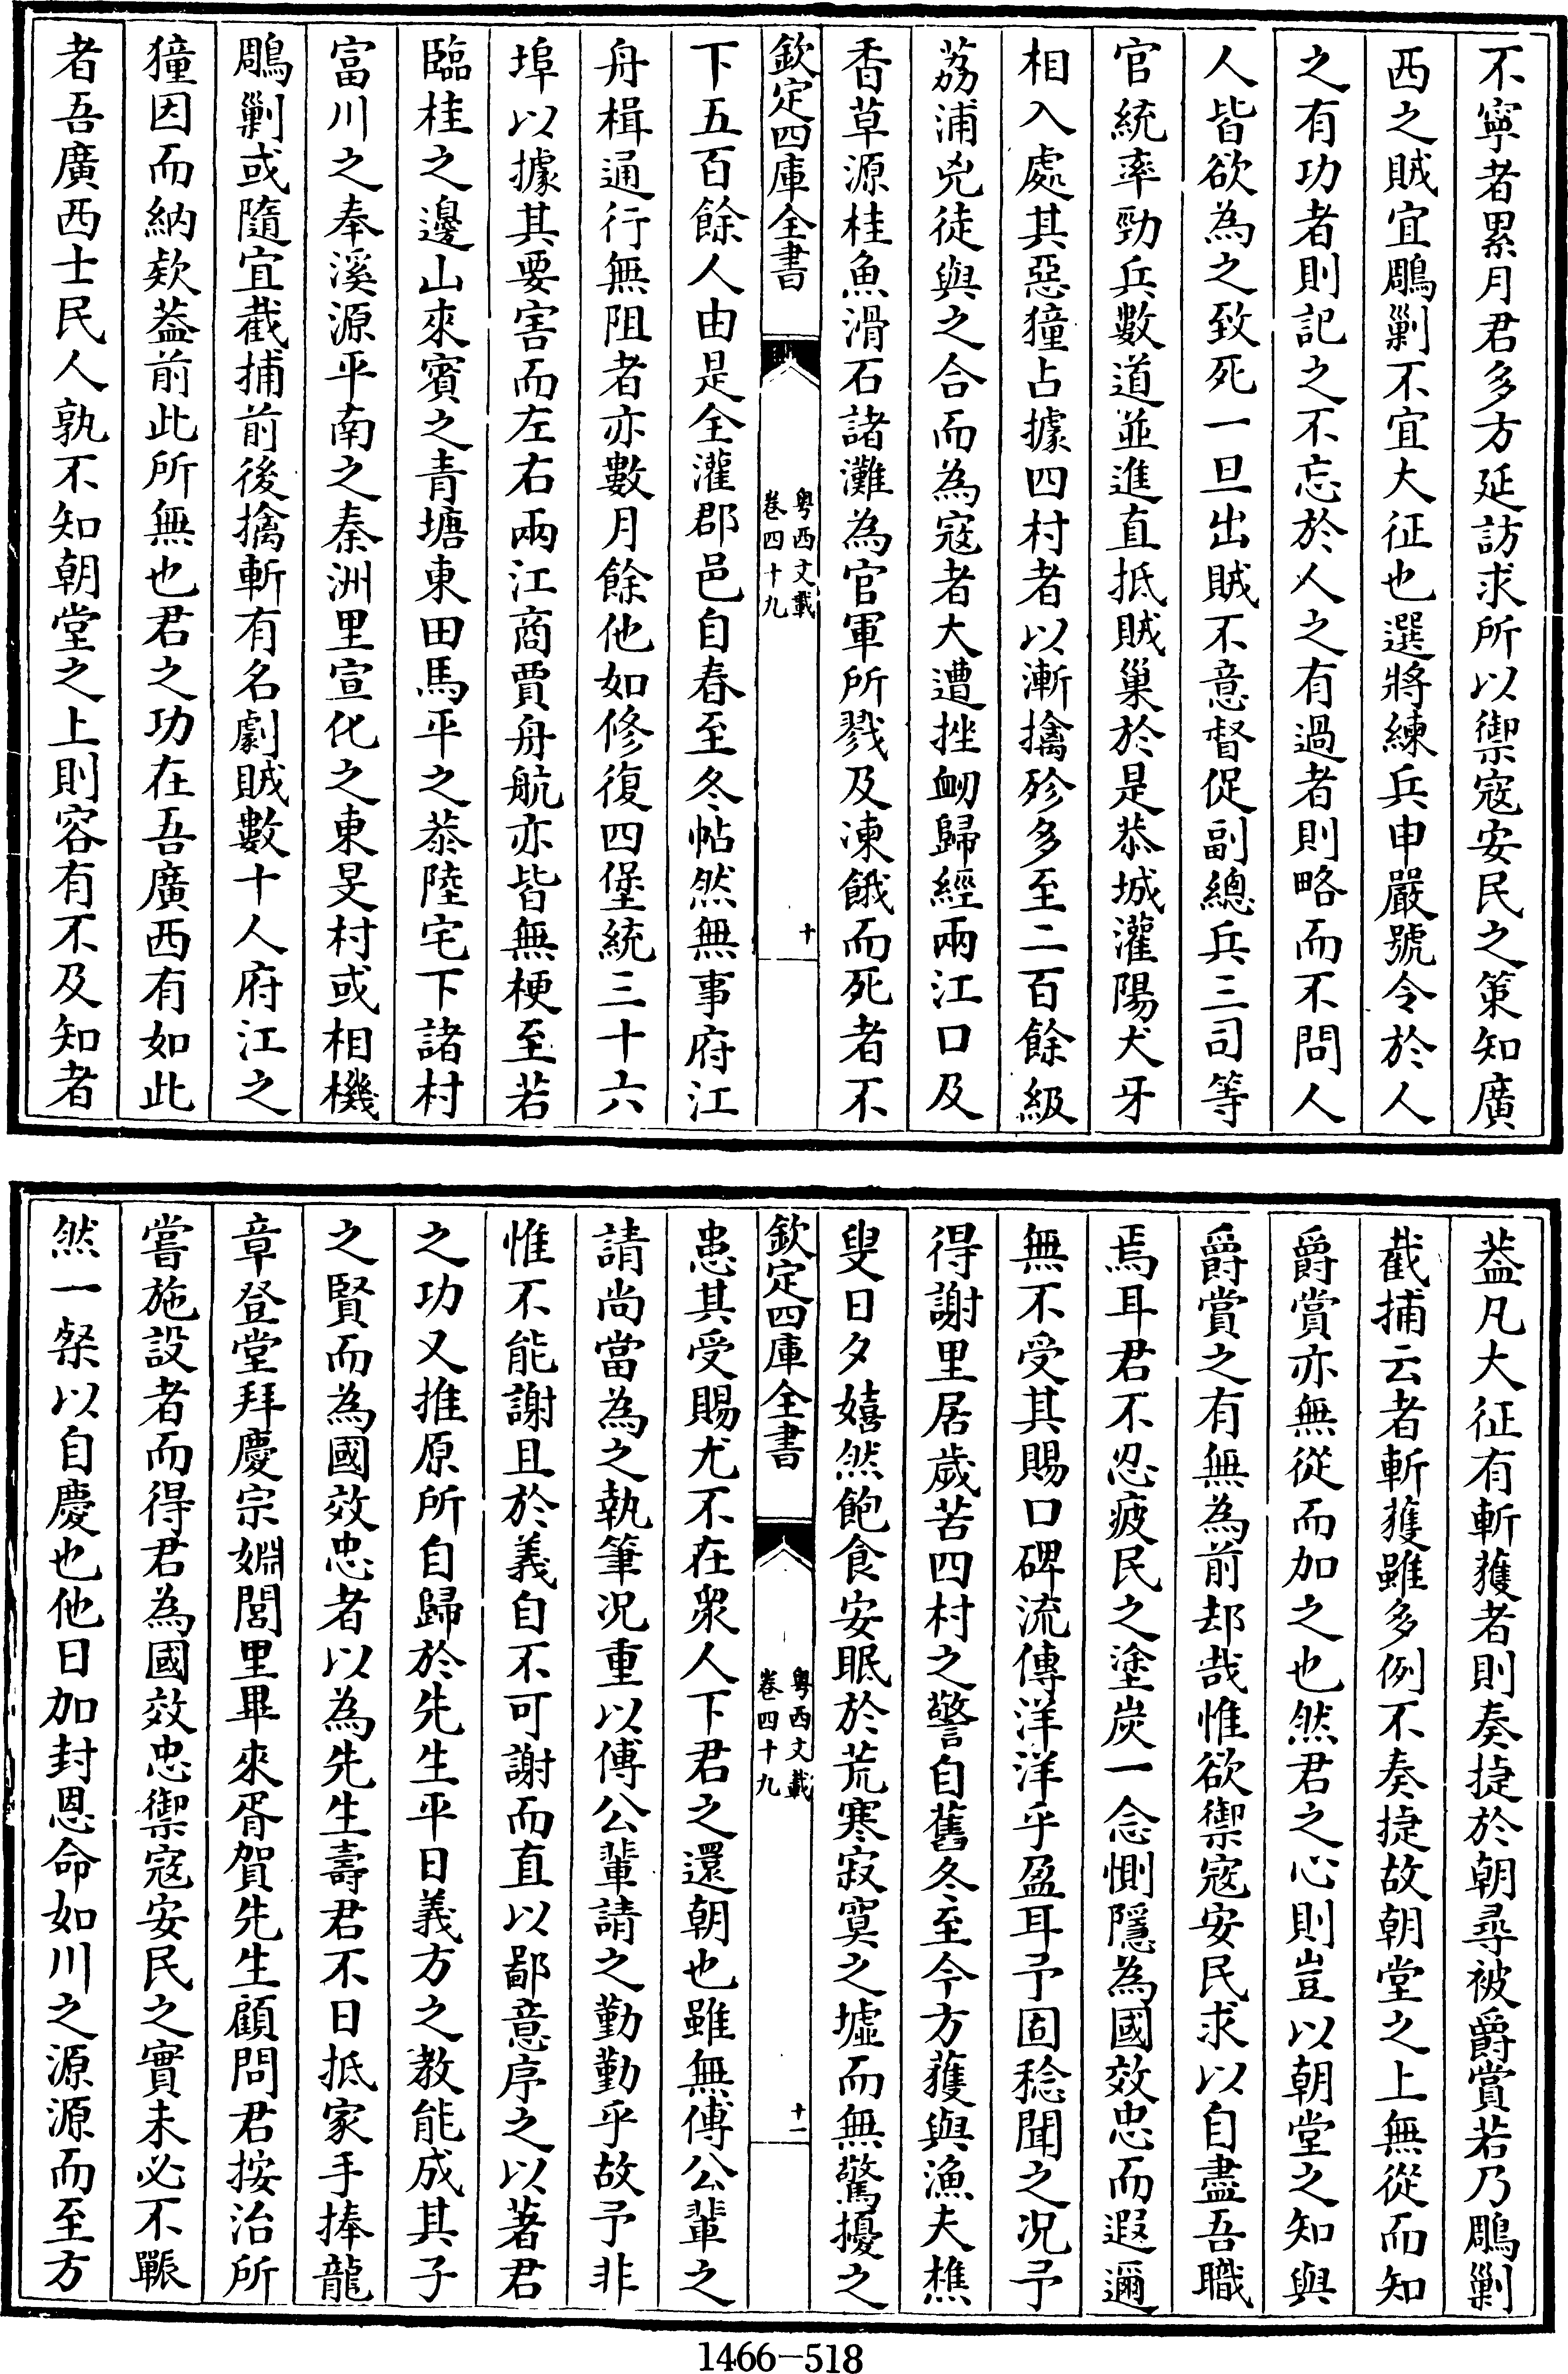 不寧者累月君多方延訪求所以禦寇安民之策知廣
西之賊宜鵰剿不宜大征也選將練兵申嚴號令於人
之有功者則記之不忘於人之有過者則略而不問人
人皆欲為之致死一旦出賊不意督促副總兵三司等
官統率勁兵數道並進直抵賊巢於是恭城灌陽犬牙
相入處其惡獞占據四村者以漸擒殄多至二百餘級
荔浦兇徒與之合而為寇者大遭挫衂歸經兩江口及
香草源桂魚滑石諸灘為官軍所戮及凍餓而死者不
欽定四庫全書
粵西文載
卷四十九
十
下五百餘人由是全灌郡邑自春至冬帖然無事府江
舟楫通行無阻者亦數月餘他如修復四堡統三十六
埠以據其要害而左右兩江商賈舟航亦皆無梗至若
臨桂之邊山來賓之青塘東田馬平之菾陸宅下諸村
富川之奉溪源平南之秦洲里宣化之東旻村或相機
鵰剿或隨宜截捕前後擒斬有名劇賊數十人府江之
獞因而納欵葢前此所無也君之功在吾廣西有如此
者吾廣西士民人孰不知朝堂之上則容有不及知者
葢凡大征有斬獲者則奏捷於朝尋被爵賞若乃鵰剿
截捕云者斬獲雖多例不奏捷故朝堂之上無從而知
爵賞亦無從而加之也然君之心則豈以朝堂之知與
爵賞之有無為前却哉惟欲禦寇安民求以自盡吾職
焉耳君不忍疲民之塗炭一念惻隱為國效忠而遐邇
無不受其賜口碑流傳洋洋乎盈耳予固稔聞之况予
得謝里居歲苦四村之警自舊冬至今方獲與漁夫樵
叟日夕嬉然飽食安眠於荒寒寂寞之墟而無驚擾之
欽定四庫全書
粵西文載
卷四十九
十一
患其受賜尤不在衆人下君之還朝也雖無傅公輩之
請尚當為之執筆况重以傅公輩請之勤勤乎故予非
惟不能謝且於義自不可謝而直以鄙意序之以著君
之功又推原所自歸於先生平日義方之教能成其子
之賢而為國效忠者以為先生壽君不日抵家手捧龍
章登堂拜慶宗婣閭里畢來胥賀先生顧問君按治所
嘗施設者而得君為國效忠禦寇安民之實未必不囅
然一粲以自慶也他日加封恩命如川之源源而至方
1466-518